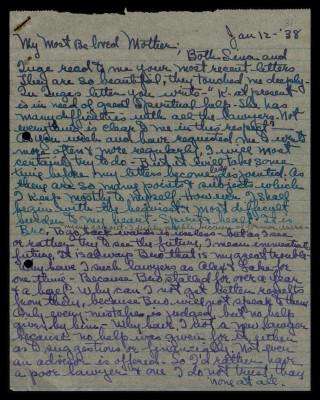 Jan 12 - '38
My Most Beloved Mother;
Both Sena and
Inge read to me your most recent letters
They are so beautiful, they touched me deeply
In Inge's letter you write - "K. at present
is in need of good spiritual help. She has
many difficulties with all the lawyers. Not
everything is clear to me in this respect -"
As you wish and have requested me to write
more often & more regularly, I will most
certainly try to do - But it will take some
time before my letters become up to date. As
there are so many points & subjects which
I keep mostly to myself. However I shall
begin with the heaviest and most difficult
burden to my heart - It is
Bro. To go back wards is useless - but as I see
or rather try to see the future, I mean immediate
future, it is always Bro that is my great trouble -
Why have I such lawyers as Alex & Lake for
one thing - Because Bro stalled for over a year
& a half. Why can I not get better results
from them, because Bro will not speak to them
Only every mistake is judged, but no help
given by him - Why have I not a new lawyer
because no help was given for it, either
as to suggestions or financially. Not even
an advisor is offered. So I'd rather have
a poor lawyer & one I do not trust than
none at all.